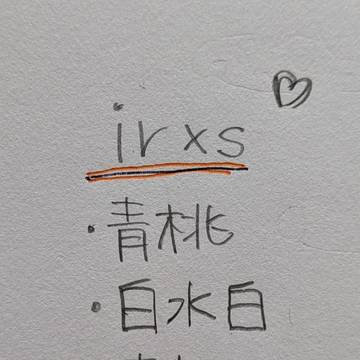 irxs
・青桃
・白水白